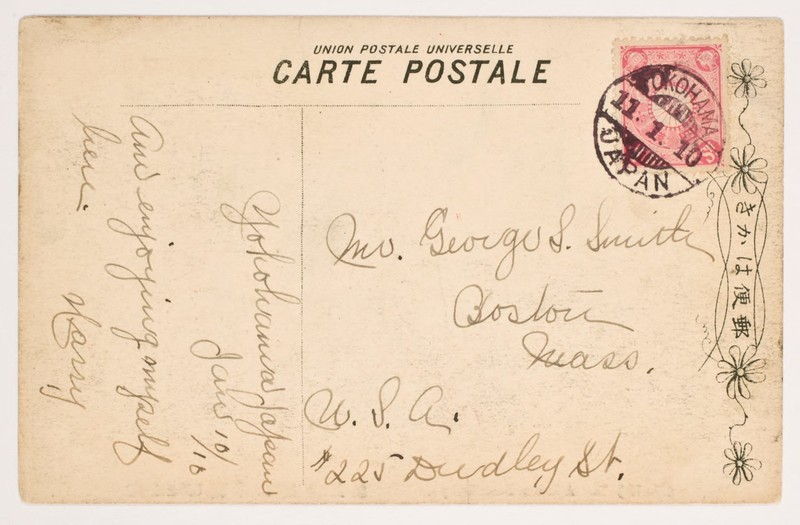 UNION POSTALE UNIVERSELLE
CARTE POSTALE
YOKOHAMA
11. 1. 10
JAPAN
きかは便郵
Yokohama Japan
Jan 10/10
Am enjoying myself
here.
Harry
Mr. George S. Smith
Boston
Mass.
U. S. A.
#225 Dudley St.